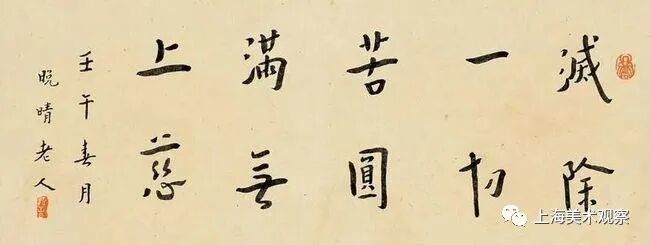 滅除
一切
苦圓
滿無
上慈
壬午春月
晚晴老人
上海美术观察